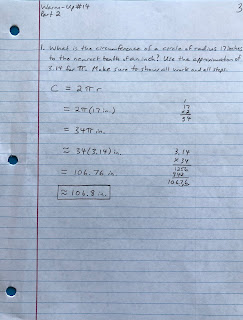 Warm-Up #14
Part 2
3
1. What is the circumference of a circle of radius 17 inches
to the nearest tenth of an inch? Use the approximation of
3.14 for π. Make sure to show all work and all steps.
C = 2πr
= 2π(17 in.)
1
17
x2
34
= 34π in.
≈ 34(3.14) in.
3.14
x 34
1256
942
106.76
= 106.76 in.
≈ 106.8 in.